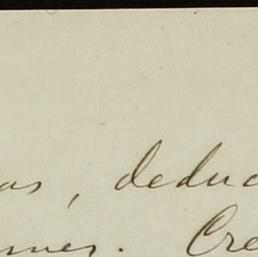 as, deduc
mes. Cre